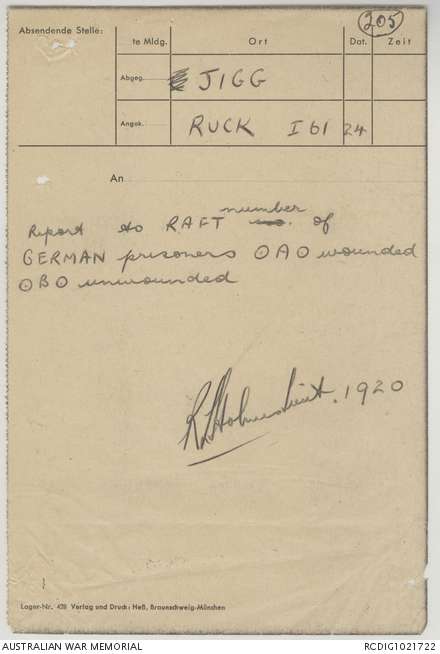 205
Absendende Stelle:
te Mldg. Ort Dat. Zeit
Abgeg. JIGG
Angek. RUCK I 61 24
An
Report to RAFT number of
GERMAN prisoners OAO wounded
OBO unwounded
Lieut. 1920
Lager-Nr. 428 Verlag und Druck: Heß, Braunschweig-München
AUSTRALIAN WAR MEMORIAL RCDIG1021722